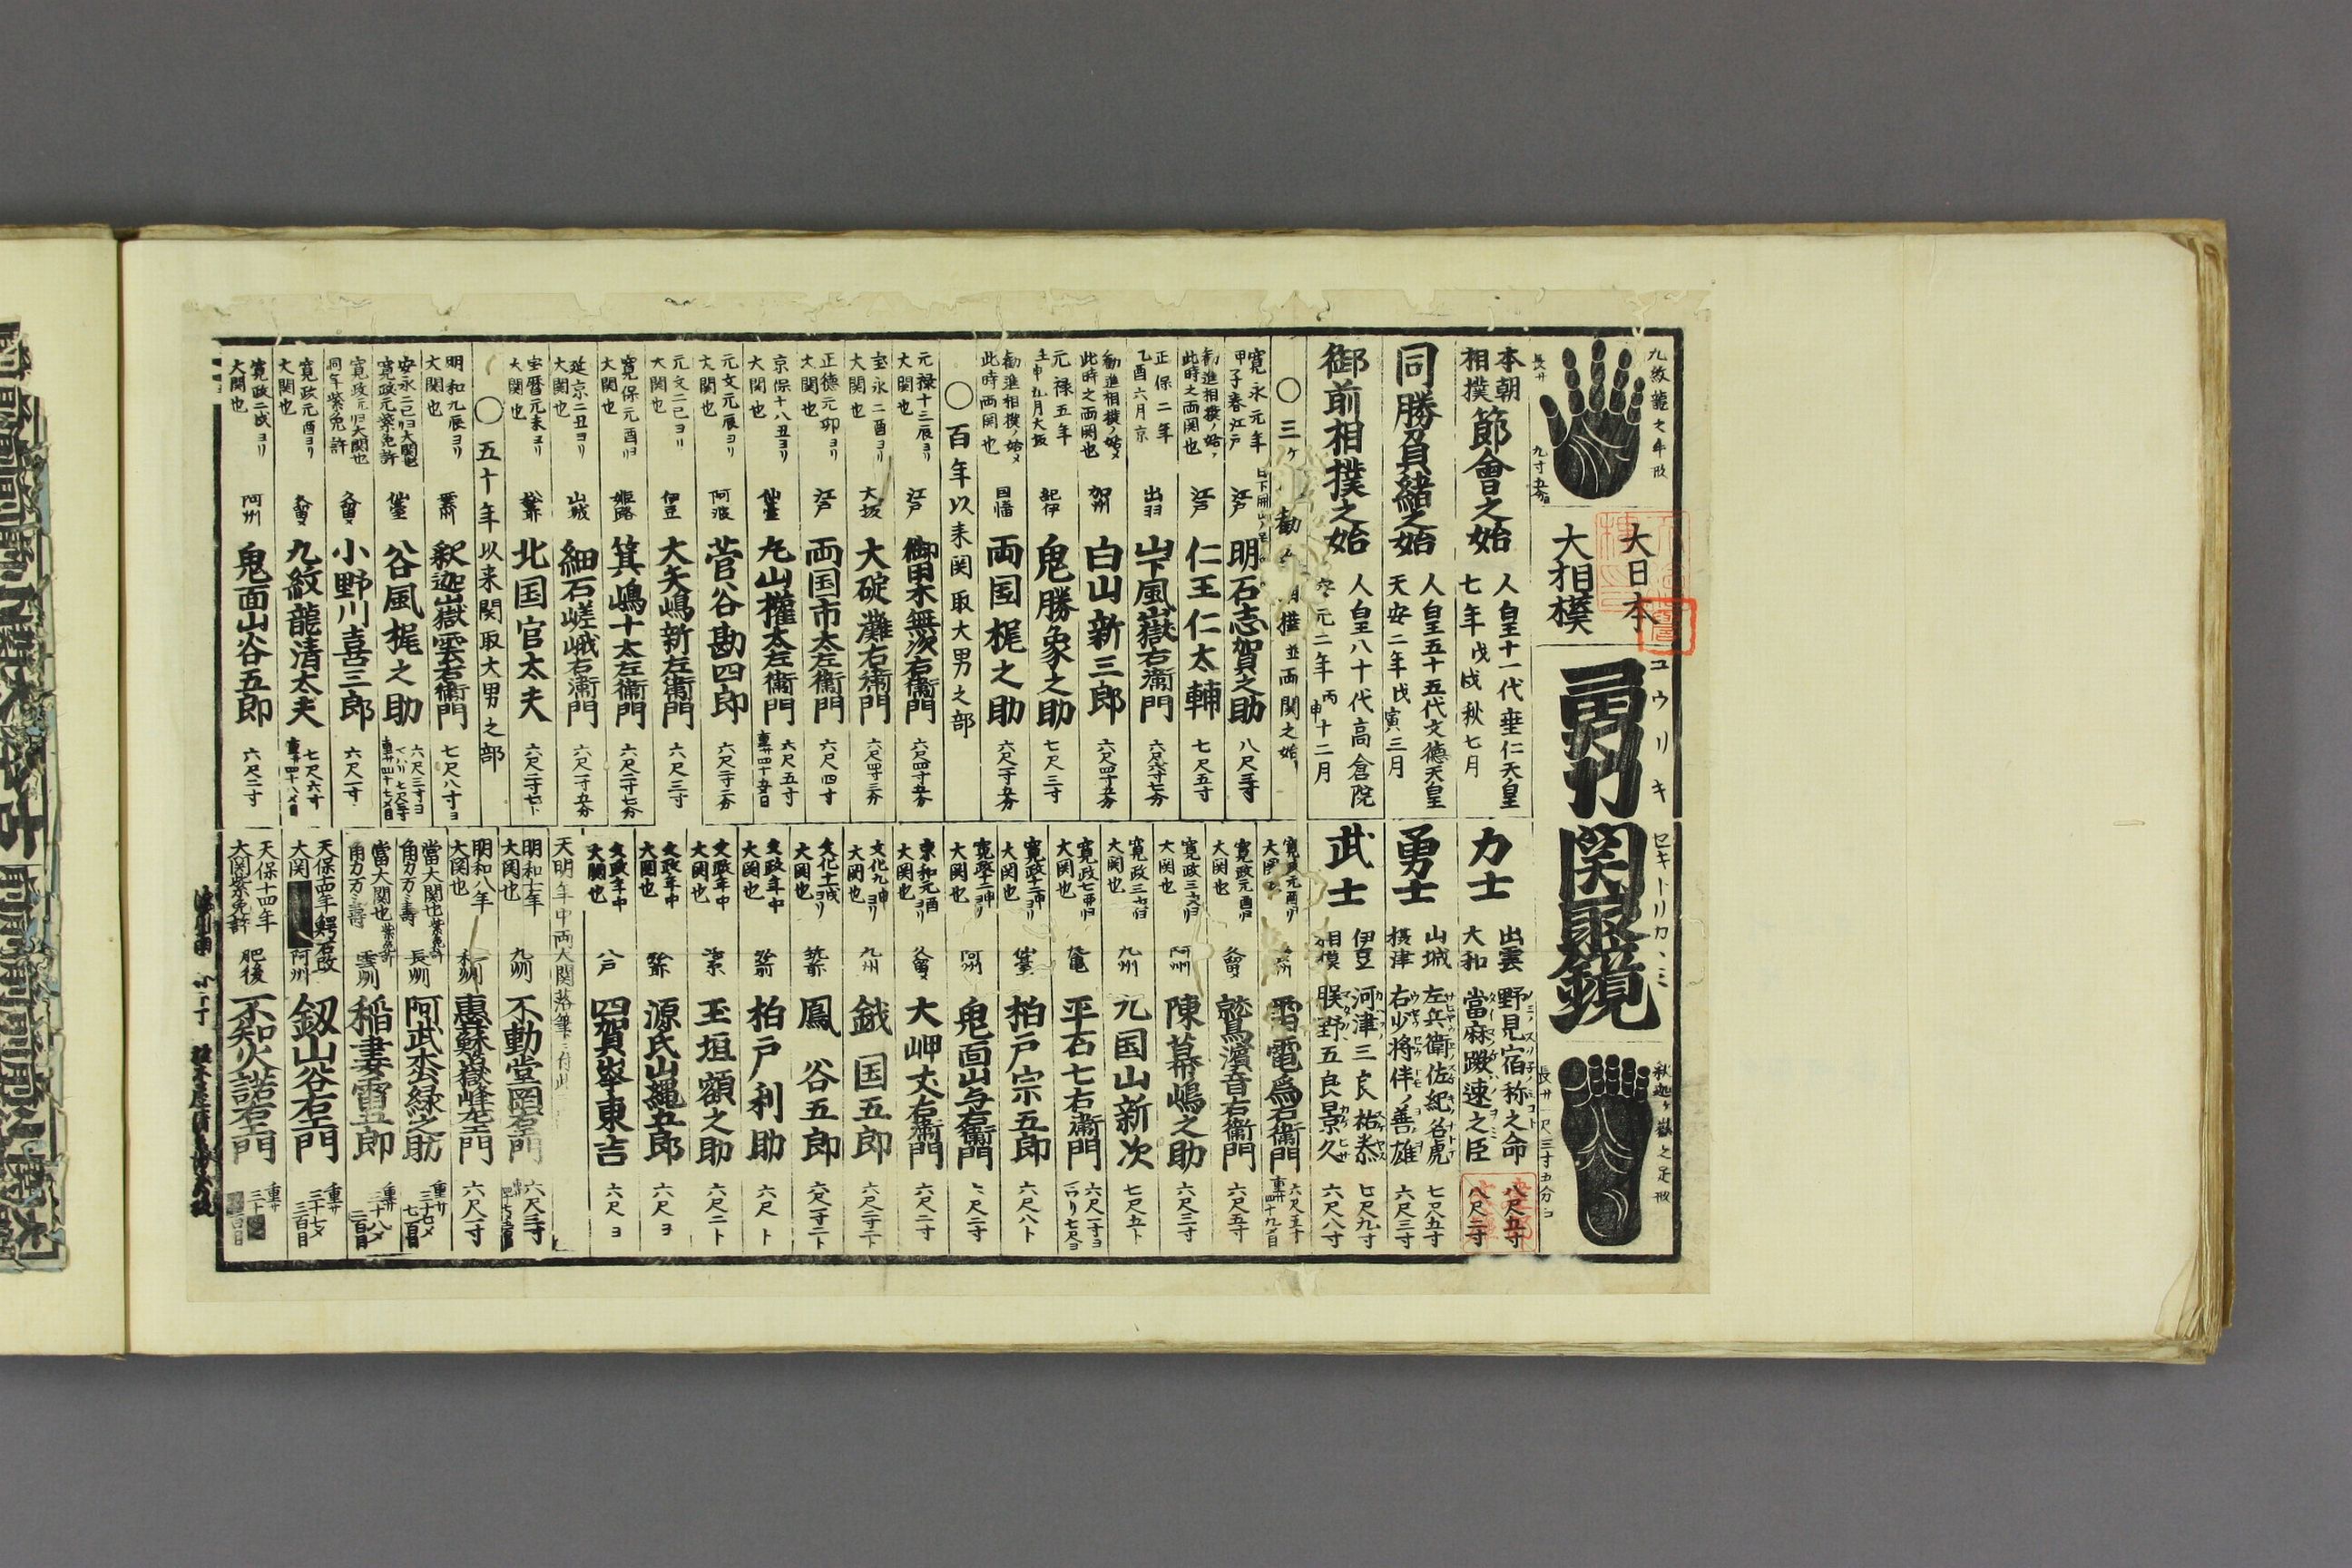 九紋龍之手形
長サ
九寸五分
大日本
大相撲
コウリキ
勇力
セキトリカヽミ
関取鏡
釈迦ヶ嶽之足形
長サ一尺三寸五分ヨ
本朝
相撲
節會之始
人皇十一代垂仁天皇
七年戊戌秋七月
同勝負緒之始
人皇五十五代文德天皇
天安二年戊寅三月
御前相撲之始
人皇八十代高倉院
元二年丙申十二月
〇三ヶ
勧
並両関之始
寛永元年
甲子春江戸
江戸
明石志賀之助
八尺三寸
勧進相撲ノ始メ
此時之両関也
江戸
仁王仁太輔
七尺五寸
正保二年
乙酉六月京
出羽
山下風嶽右衛門
六尺六寸七分
勧進相撲ノ始メ
此時之両関也
加州
白山新三郎
六尺四寸五分
元禄五年
壬申九月大坂
紀伊
鬼勝象之助
七尺三寸
勧進相撲ノ始メ
此時両関也
因幡
両国梶之助
六尺二寸五分
〇百年以来関取大男之部
元禄十三辰ヨリ
大関也
江戸
御用木無次右衛門
六尺四寸五分
宝永二酉ヨリ
大関也
大坂
大碇灘右衛門
六尺四寸三分
正徳元卯ヨリ
大関也
江戸
両国市太左衛門
六尺四寸
京保十八丑ヨリ
大関也
仙臺
丸山權太左衛門
六尺五寸
重サ四十五〆目
元文元辰ヨリ
大関也
阿波
菅谷勘四郎
六尺二寸三分
元文二巳ヨリ
大関也
伊豆
大矢嶋新左衛門
六尺三寸
寛保元酉ヨリ
大関也
姫路
箕嶋十太左衛門
六尺二寸七分
延京二丑ヨリ
大関也
山城
細石嵯峨右衛門
六尺一寸五分
宝暦元未ヨリ
大関也
北国官太夫
六尺二寸七卜
〇五十年以来関取大男之部
明和九辰ヨリ
大関也
雲州
釈迦嶽雲右衛門
七尺八寸ヨ
安永二巳ヨリ大関也
寛政元紫免許
仙臺
谷風梶之助
六尺三寸ヨ
寛政元ヨリ大関也
同年紫免許
久留メ
小野川喜三郎
六尺一寸
寛政元酉ヨリ
大関也
久留メ
九紋龍清太夫
七尺六寸
重サ四十八〆目
寛政二戌ヨリ
大関也
阿州
鬼面山谷五郎
六尺二寸
力士
出雲
野見宿称之命
八尺五寸
大和
當麻蹶速之臣
八尺二寸
勇士
山城
左兵衛佐紀名虎
七尺五寸
摂津
右少将伴ノ善雄
六尺三寸
武士
伊豆
河津三良祐泰
七尺九寸
相模
俣野五良景久
六尺八寸
寛政元酉ヨリ
大関也
雷電為右衛門
六尺五寸
重サ四十九〆目
寛政元酉ヨリ
大関也
久留メ
鷲濱音右衛門
六尺五寸
寛政三亥ヨリ
大関也
阿州
陳幕嶋之助
六尺三寸
寛政三
大関也
九州
九国山新次
七尺五卜
寛政七
大関也
平石七右衛門
六尺一寸ヨ
寛政十二申ヨリ
大関也
柏戸宗五郎
六尺八卜
寛政十二申ヨリ
大関也
阿州
鬼面山与右衛門
六尺二寸
享和元酉ヨリ
大関也
久留メ
大岬丈右衛門
六尺二寸
文化九申ヨリ
大関也
九州
鉞国五郎
六尺二寸三卜
文化十一戌ヨリ
大関也
鳳谷五郎
六尺一寸二卜
文政年中
大関也
柏戸利助
六尺卜
文政年中
大関也
津軽
玉垣額之助
六尺二卜
文政年中
大関也
源氏山縄五郎
六尺ヨ
文政年中
大関也
八戸
四賀峯東吉
六尺ヨ
天明年中両大関落筆ニ付此
明和七年
大関也
九州
不動堂国右エ門
六尺三寸
明和八年
大関也
恵蘇嶽峰右エ門
六尺一寸
當大関也紫免許
角力万々壽
長州
阿武松緑之助
重サ
三十七〆
當大関也紫免許
角力万々壽
雲州
稲妻雷五郎
重サ
三十八〆
天保十四年鰐石改
大関
阿州
釼山谷右エ門
重サ
三十七〆
三百目
天保十四年
大関紫免許
肥後
不知火諾右エ門
重サ